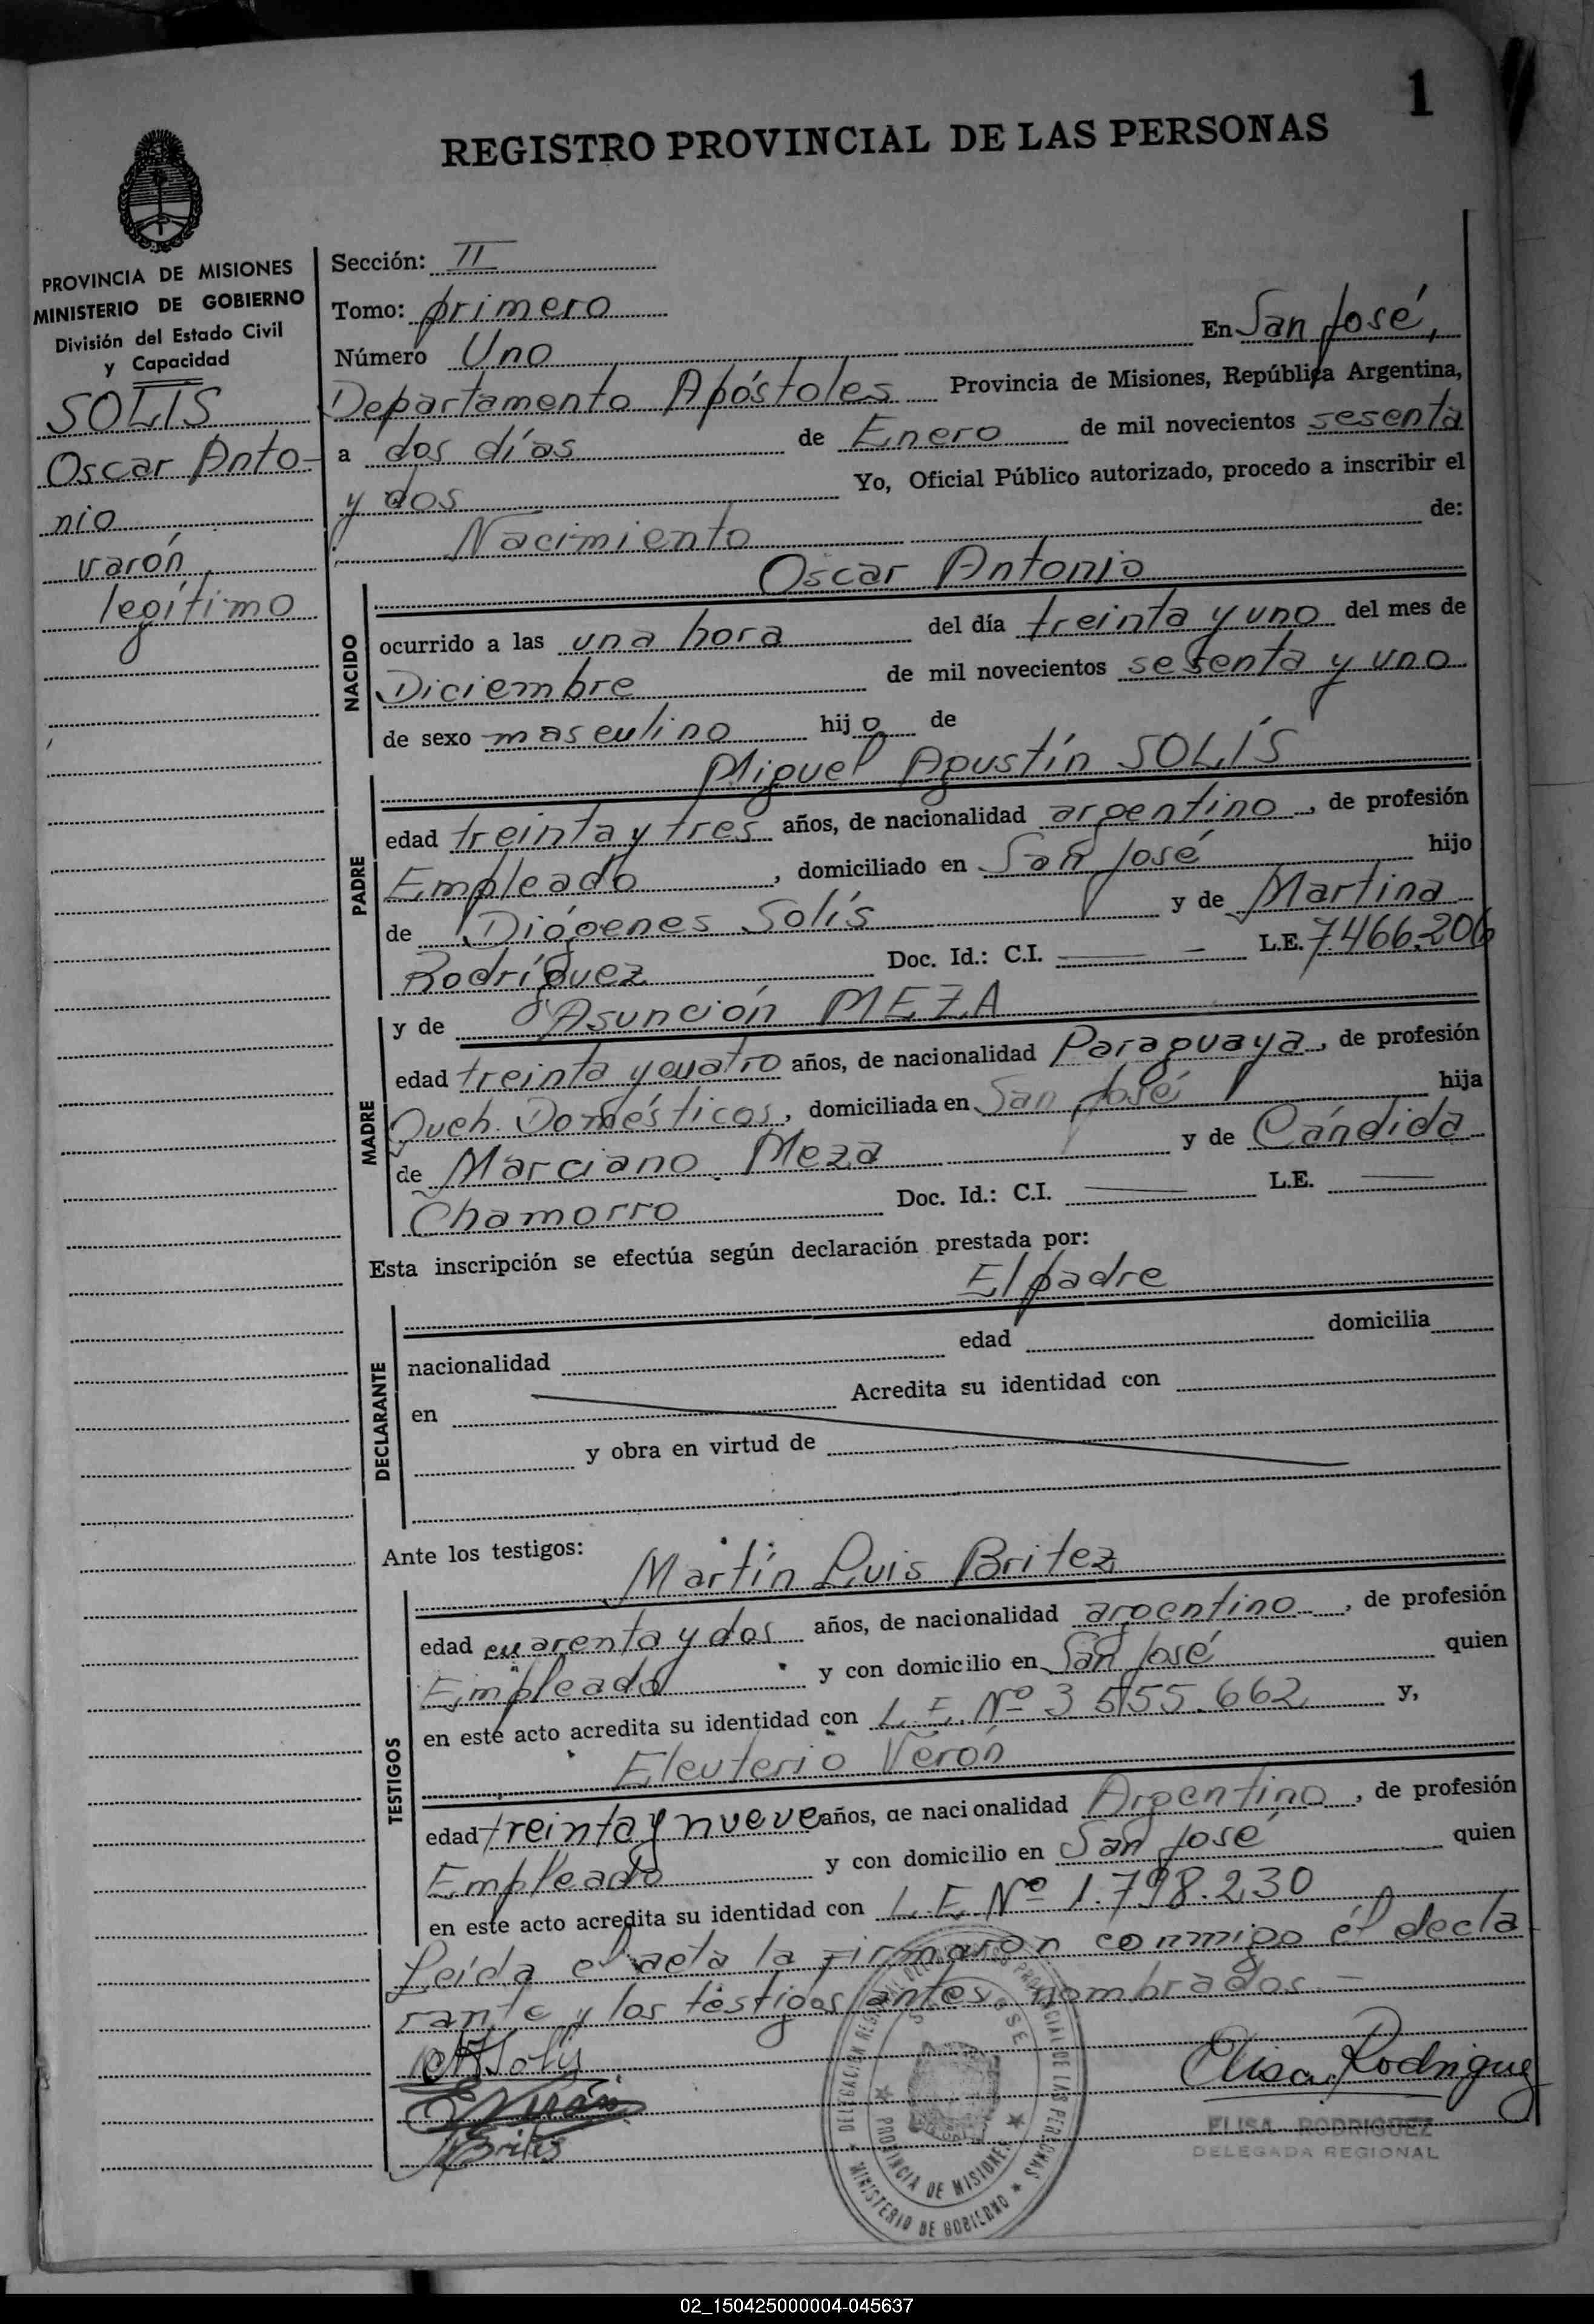 1
REGISTRO PROVINCIAL DE LAS PERSONAS
PROVINCIA DE MISIONES
MINISTERIO DE GOBIERNO
División del Estado Civil
y Capacidad
SOLIS
Oscar Anto-
nio
varón
legítimo
Sección: II
Tomo: primero
Número Uno En San José,
Departamento Apóstoles Provincia de Misiones, República Argentina,
a dos días de Enero de mil novecientos sesenta
y dos Yo, Oficial Público autorizado, procedo a inscribir el
Nacimiento de:
Oscar Antonio
NACIDO
ocurrido a las una hora del día treinta y uno del mes de
Diciembre de mil novecientos sesenta y uno
de sexo masculino hijo de
Miguel Agustín SOLÍS
PADRE
edad treinta y tres años, de nacionalidad argentino, de profesión
Empleado, domiciliado en San José hijo
de Diógenes Solís y de Martina
Rodríguez Doc. Id.: C.I. — L.E. 7.466.206
y de Asunción MEZA
MADRE
edad treinta y cuatro años, de nacionalidad Paraguaya, de profesión
Queh. Domésticos, domiciliada en San José hija
de Marciano Meza y de Cándida
Chamorro Doc. Id.: C.I. — L.E. —
Esta inscripción se efectúa según declaración prestada por:
El padre
DECLARANTE
nacionalidad edad domicilia
en Acredita su identidad con
y obra en virtud de
Ante los testigos:
Martín Luis Britez
TESTIGOS
edad cuarenta y dos años, de nacionalidad argentino, de profesión
Empleado y con domicilio en San José quien
en este acto acredita su identidad con L.E. Nº 3.555.662 y,
Eleuterio Verón
edad treinta y nueve años, de nacionalidad Argentino, de profesión
Empleado y con domicilio en San José quien
en este acto acredita su identidad con L.E. Nº 1.798.230
Leída el acta la firmaron conmigo él decla
rante y los testigos antes nombrados.—
Solís
Verón
Britez
Elisa Rodriguez
ELISA RODRIGUEZ
DELEGADA REGIONAL
SAN JOSE
PROVINCIA DE MISIONES
MINISTERIO DE GOBIERNO
02_150425000004-045637